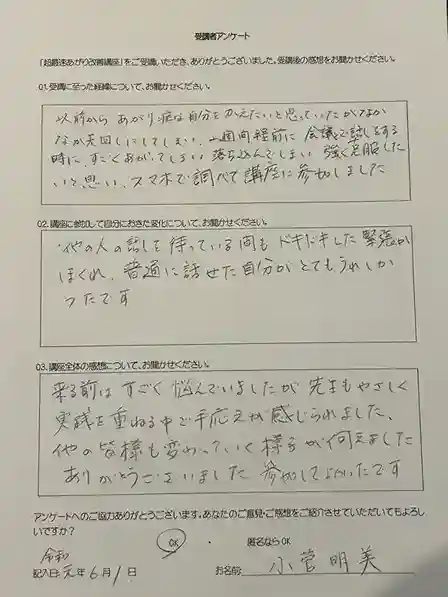 受講者アンケート
「超最速あがり改善講座」をご受講いただき、ありがとうございました。受講後の感想をお聞かせください。
01.受講に至った経緯について、お聞かせください。
以前から あがり症は自分をかえたいと思っていたがなか
なか先回しにしてしまい、2週間程前に 会議で話しをする
時に、すごくあがってしまい 落ち込んでしまい 強く克服した
いと思い、スマホで調べて講座に参加しました
02.講座に参加して自分におきた変化について、お聞かせください。
他の人の話しを待っている間も ドキドキした緊張が
ほぐれ、普通に話せた自分がとてもうれしか
ったです
03.講座全体の感想について、お聞かせください。
来る前は すごく 悩んでいましたが 先生もやさしく
実践を重ねる中で手応えが感じられました、
他の皆様も変わっていく様子が伺えました
ありがとうございました 参加してよかったです
アンケートへのご協力ありがとうございます。あなたのご意見・ご感想をご紹介させていただいてもよろし
いですか?
OK ・ 匿名ならOK
令和
記入日 元年6月1日 お名前 小菅明美